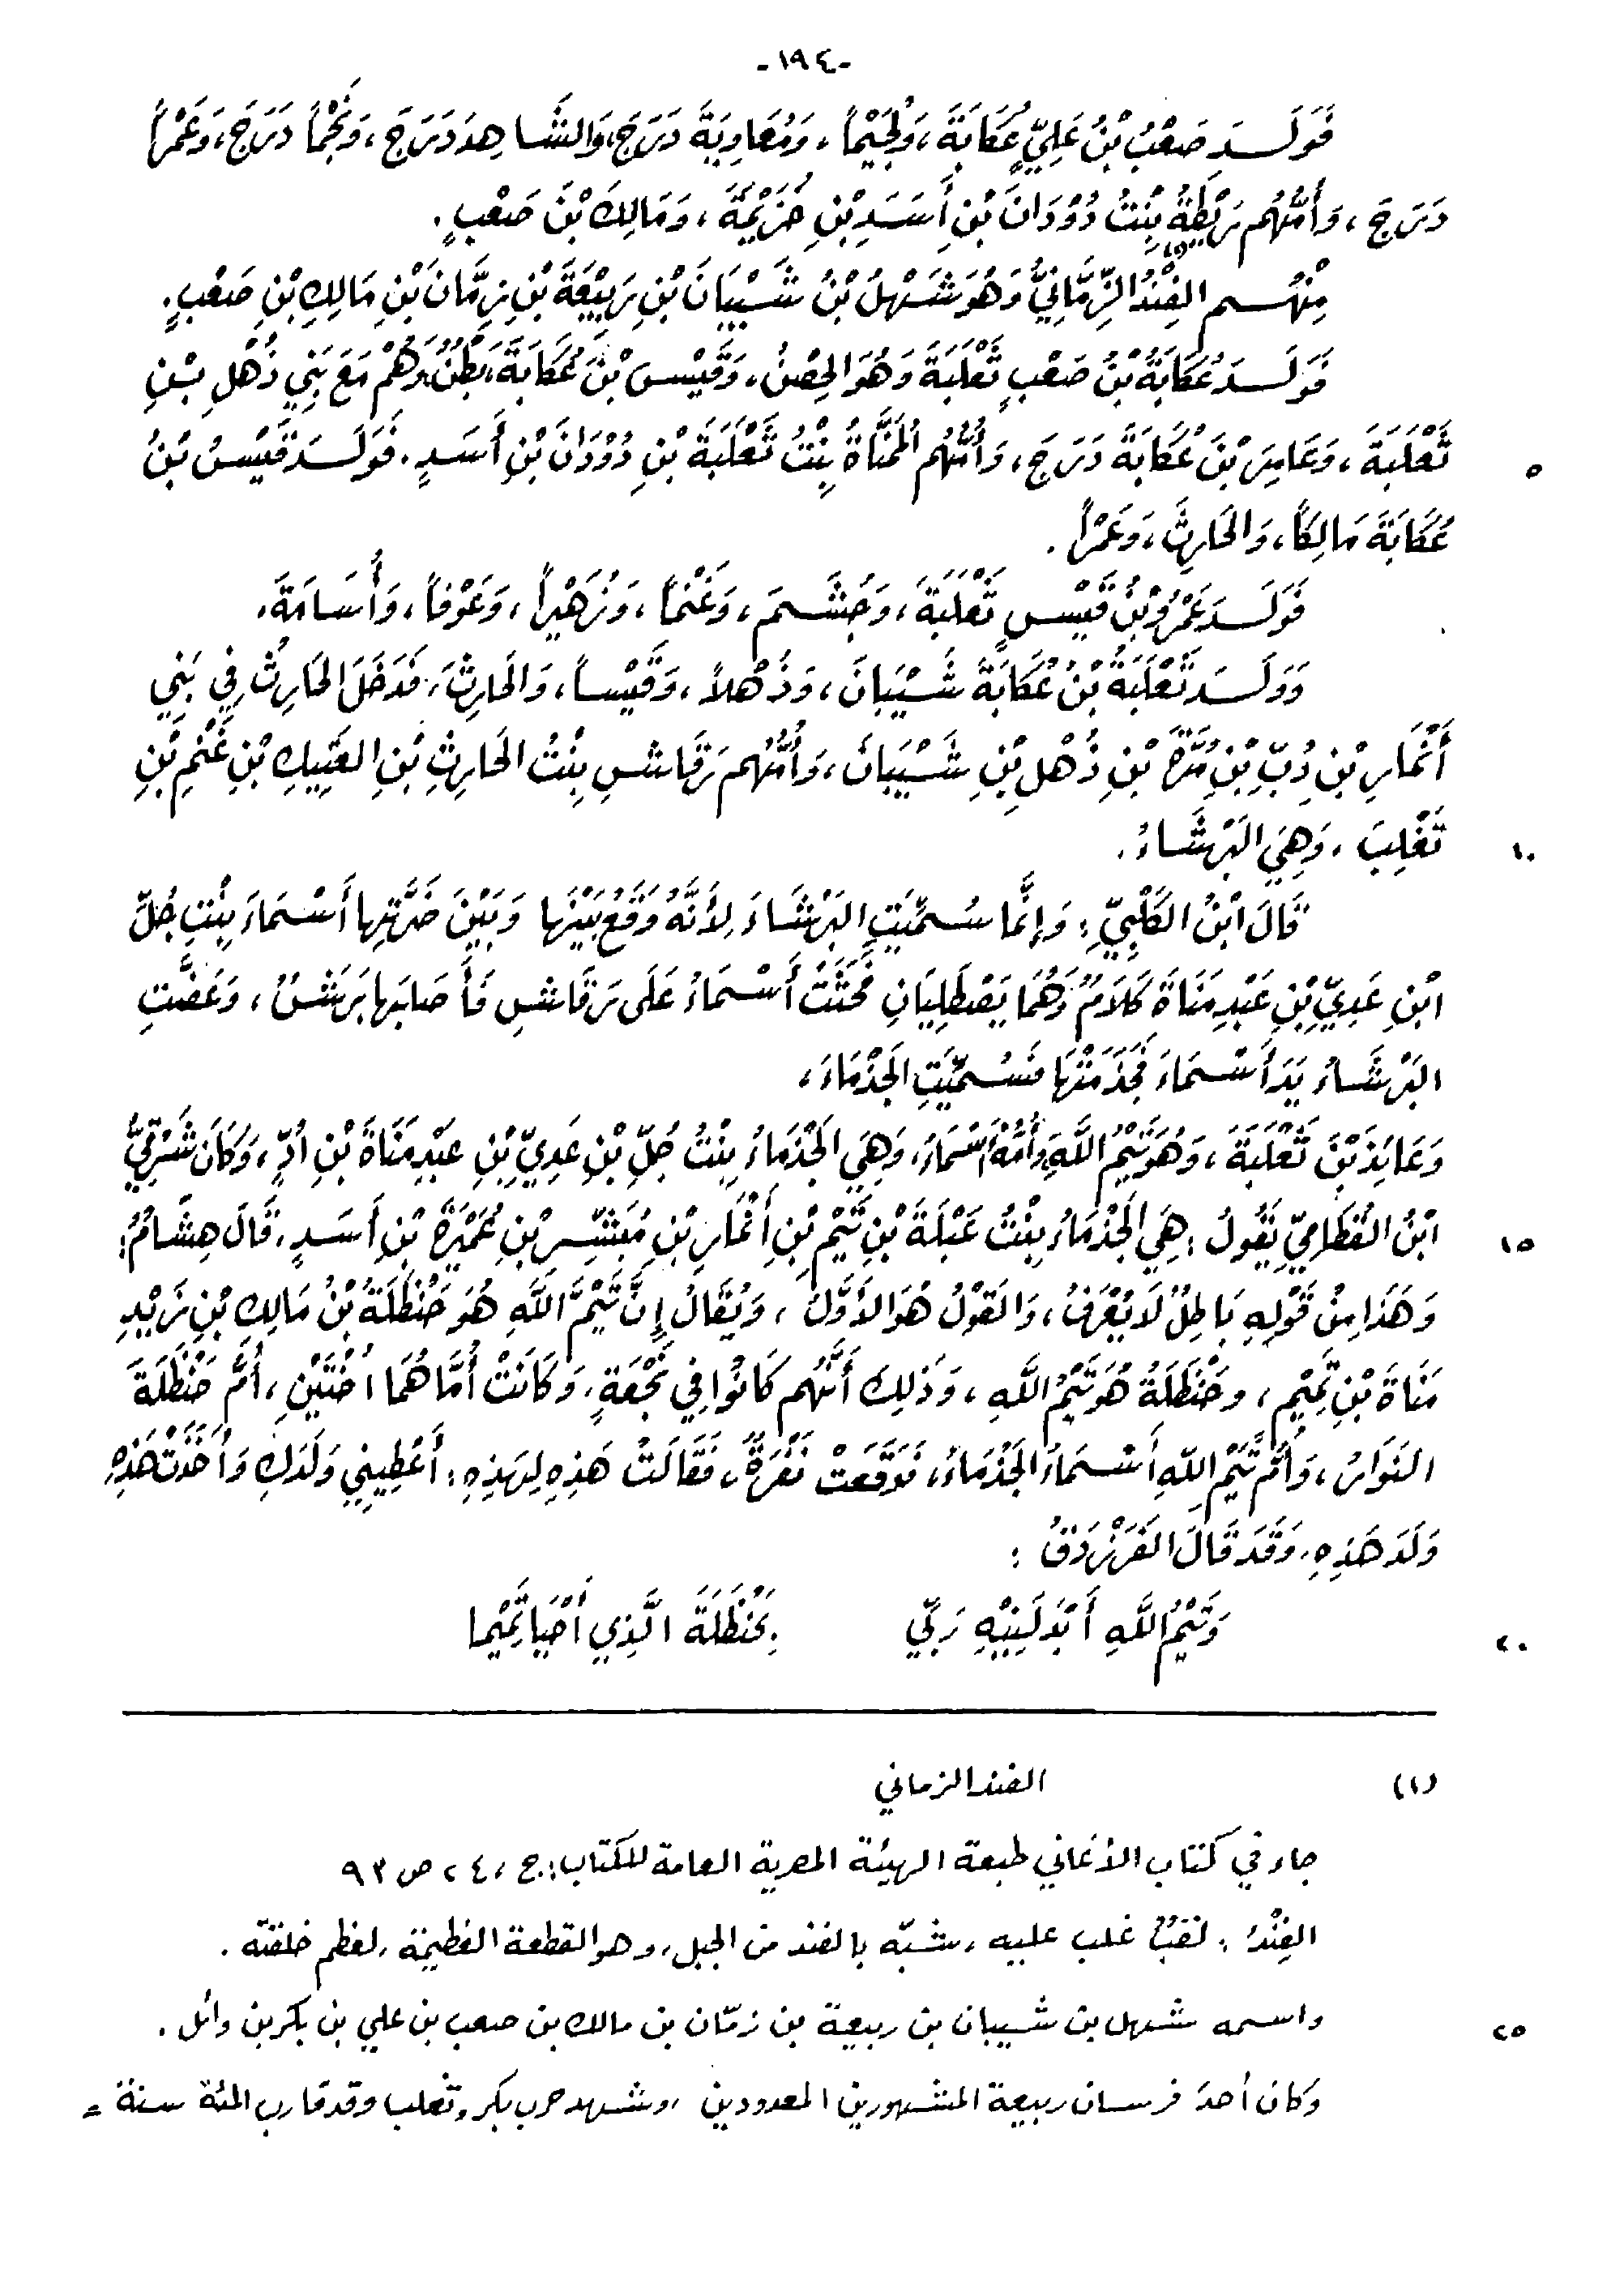 -١٩٤-
فَوَلَـدَ صَعْبُ بْنُ عَلِيٍّ عُكَابَةَ، وَلُجَيْماً، وَمُعَاوِيَةَ دَرَجَ، وَالشَّاهِدَ دَرَجَ، وَنَجْماً دَرَجَ، وَعَمْراً
دَرَجَ، وَأُمُّهُم رَيْطَةُ بِنْتُ دُوْدَانَ بْنِ أَسَدِ بْنِ خُزَيْمَةَ، وَمَالِكَ بْنَ صَعْبٍ.
مِنْهُـم الفِنْدُ الزِّمَّانِيُّ(١) وَهُوَ شَهْلُ بْنُ شَيْبَانَ بْنِ رَبِيْعَةَ بْنِ زِمَّانَ بْنِ مَالِكِ بْنِ صَعْبٍ.
فَوَلَـدَ عُكَابَةُ بْنُ صَعْبٍ ثَعْلَبَةَ وَهُوَ الحِصْنُ، وَقَيْسَ بْنَ عُكَابَةَ، بَطْنٌ، وَهُمْ مَعَ بَنِي ذُهْلِ بْنِ
٥ ثَعْلَبَةَ، وَعَامِرَ بْنَ عُكَابَةَ دَرَجَ، وَأُمُّهُم المُمَنَّاةُ بِنْتُ ثَعْلَبَةَ بْنِ دُوْدَانَ بْنِ أَسَدٍ. فَوَلَـدَ قَيْسُ بْنُ
عُكَابَةَ مَالِكاً، وَالحَارِثَ، وَعَمْراً.
فَوَلَـدَ عَمْرُو بْنُ قَيْسٍ ثَعْلَبَةَ، وَجُشَـمَ، وَغَنْماً، وَزُهَيْراً، وَعَوْفاً، وَأُسَامَةَ.
وَوَلَـدَ ثَعْلَبَةُ بْنُ عُكَابَةَ شَيْبَانَ، وَذُهْلاً، وَقَيْساً، وَالحَارِثَ، فَدَخَلَ الحَارِثُ فِي بَنِي
أَنْمَارِ بْنِ دُبِّ بْنِ مُرَّةَ بْنِ ذُهْلِ بْنِ شَيْبَانَ، وَأُمُّهُم رَقَاشِ بِنْتُ الحَارِثِ بْنِ العَتِيكِ بْنِ غَنْمِ بْنِ
١٠ تَغْلِبَ، وَهِيَ البَرْشَاءُ.
قَالَ ابْنُ الكَلْبِيِّ: وَإِنَّمَا سُمِّيَتِ البَرْشَاءَ لِأَنَّهُ وَقَعَ بَيْنَهَا وَبَيْنَ ضَرَّتِهَا أَسْمَاءَ بِنْتِ جُلِّ
ابْنِ عَدِيِّ بْنِ عَبْدِ مَنَاةَ كَلَامٌ وَهُمَا يَصْطَلِيَانِ فَحَثَتْ أَسْمَاءُ عَلَى رَقَاشِ فَأَصَابَهَا بَرَشٌ، وَعَضَّتِ
البَرْشَاءُ يَدَ أَسْمَاءَ فَجَذَمَتْهَا فَسُمِّيَتِ الجَذْمَاءَ،
وَعَائِذَ بْنَ ثَعْلَبَةَ، وَهُوَ تَيْمُ اللَّهِ وَأُمُّهُ أَسْمَاءُ، وَهِيَ الجَذْمَاءُ بِنْتُ جُلِّ بْنِ عَدِيِّ بْنِ عَبْدِ مَنَاةَ بْنِ أُدٍّ، وَكَانَ شَرْقِيُّ
١٥ ابْنُ القُطَامِيِّ يَقُولُ: هِيَ الجَذْمَاءُ بِنْتُ عَبْلَةَ بْنِ تَيْمِ بْنِ أَنْمَارِ بْنِ مُبَشِّرِ بْنِ عُمَيْرَةَ بْنِ أَسَدٍ، قَالَ هِشَامٌ:
وَهَذَا مِنْ قَوْلِهِ بَاطِلٌ لَا يُعْرَفُ، وَالقَوْلُ هُوَ الأَوَّلُ، وَيُقَالُ إِنَّ تَيْمَ اللَّهِ هُوَ حَنْظَلَةُ بْنُ مَالِكِ بْنِ زَيْدِ
مَنَاةَ بْنِ تَمِيْمٍ، وَحَنْظَلَةُ هُوَ تَيْمُ اللَّهِ، وَذَلِكَ أَنَّهُم كَانُوا فِي نَجْعَةٍ، وَكَانَتْ أُمَّاهُمَا أُخْتَيْنِ، أُمُّ حَنْظَلَةَ
النَوَارُ، وَأُمُّ تَيْمِ اللَّهِ أَسْمَاءُ الجَذْمَاءُ، فَوَقَعَتْ نَفْرَةٌ، فَقَالَتْ هَذِهِ لِهَذِهِ: أَعْطِينِي وَلَدَكِ وَأَخَذَتْ هَذِهِ
وَلَدَ هَذِهِ، وَقَد قَالَ الفَرَزْدَقُ:
٢٠ وَتَيْمُ اللَّهِ أَبْدَلَنِيْهِ رَبِّي بِحَنْظَلَةَ الَّذِي أَحْيَا تَمِيْما
(١) الفند الزماني
جاء في كتاب الأغاني طبعة الهيئة المصرية العامة للكتاب: ج ، ٢٤ ص ٩٣
الفِنْدُ: لقبٌ غلب عليه، شبّه بالفند من الجبل، وهو القطعة العظيمة، لعظم خلقته.
٢٥ واسمه شهل بن شيبان بن ربيعة بن زمّان بن مالك بن صعب بن علي بن بكر بن وائل.
وكان أحد فرسان ربيعة المشهورين المعدودين، وشهد حرب بكر وتغلب وقد قارب المئة سنة =